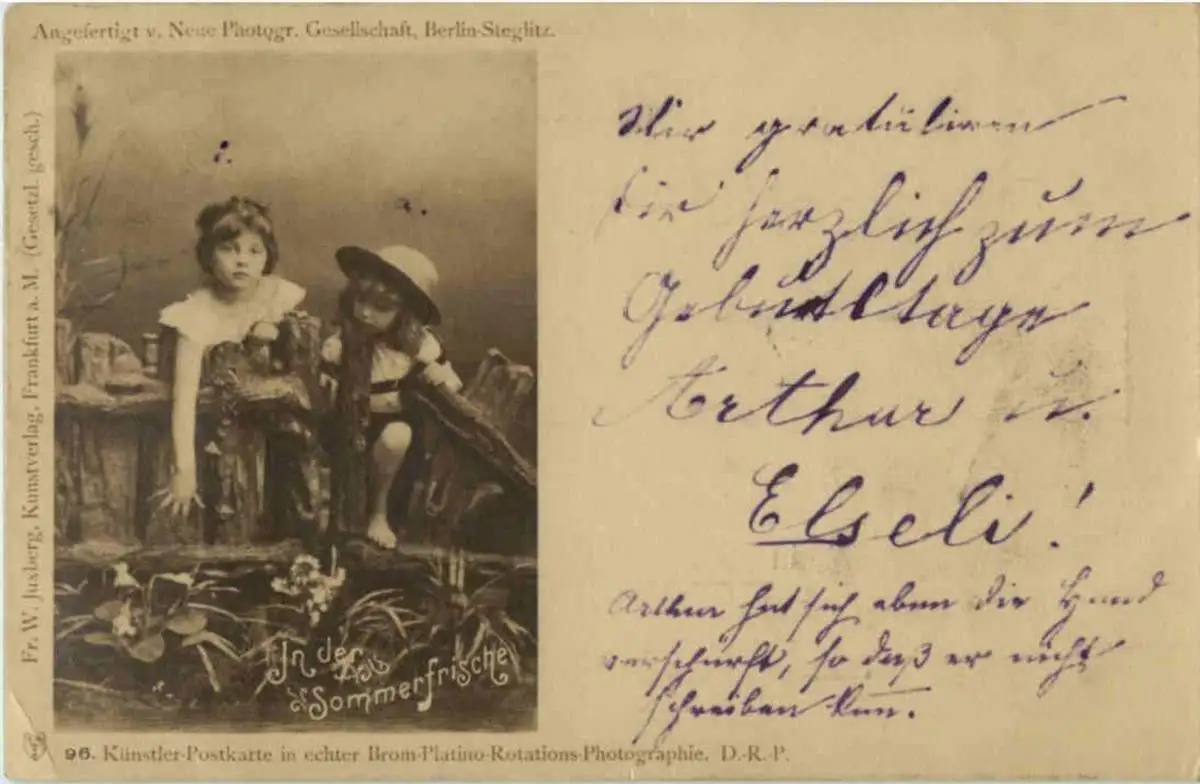 Angefertigt v. Neue Photogr. Gesellschaft, Berlin-Steglitz.
Fr. W. Juxberg, Kunstverlag, Frankfurt a. M. (Gesetzl. gesch.)
Wir gratuliren
dir herzlich zum
Geburtstage
Arthur u.
Elseli!
Arthur hat sich eben die Hand
verschürft, so daß er nicht
schreiben kann.
In der
Sommerfrische
96. Künstler-Postkarte in echter Brom-Platino-Rotations-Photographie. D.-R.-P.